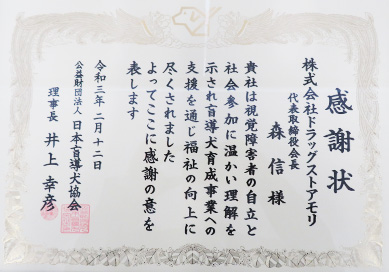 感謝状
株式会社ドラッグストアモリ
代表取締役会長
森信様
貴社は視覚障害者の自立と
社会参加に温かい理解を
示され盲導犬育成事業への
支援を通じ福祉の向上に
尽くされました
よってここに感謝の意を
表します
令和三年二月十二日
公益財団法人 日本盲導犬協会
理事長 井上幸彦